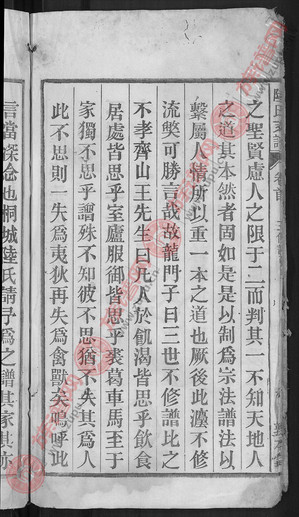 之聖賢慮人之限于二而判其一不知天地人
之道其本然者固如是是以制為宗法譜法以
繫屬人情所以重一本之道也厥後此灋不修
流獘可勝言哉故龍門子曰三世不修譜比之
不孝齊山王先生曰凡人於飢渴皆思乎飲食
居處皆思乎室廬服御皆思乎裘葛車馬至于
家獨不思乎譜殊不知彼不思猶不失其為人
此不思則一失為夷狄再失為禽獸矣嗚呼此
言當深念也桐城陸氏請予為之譜其家其亦